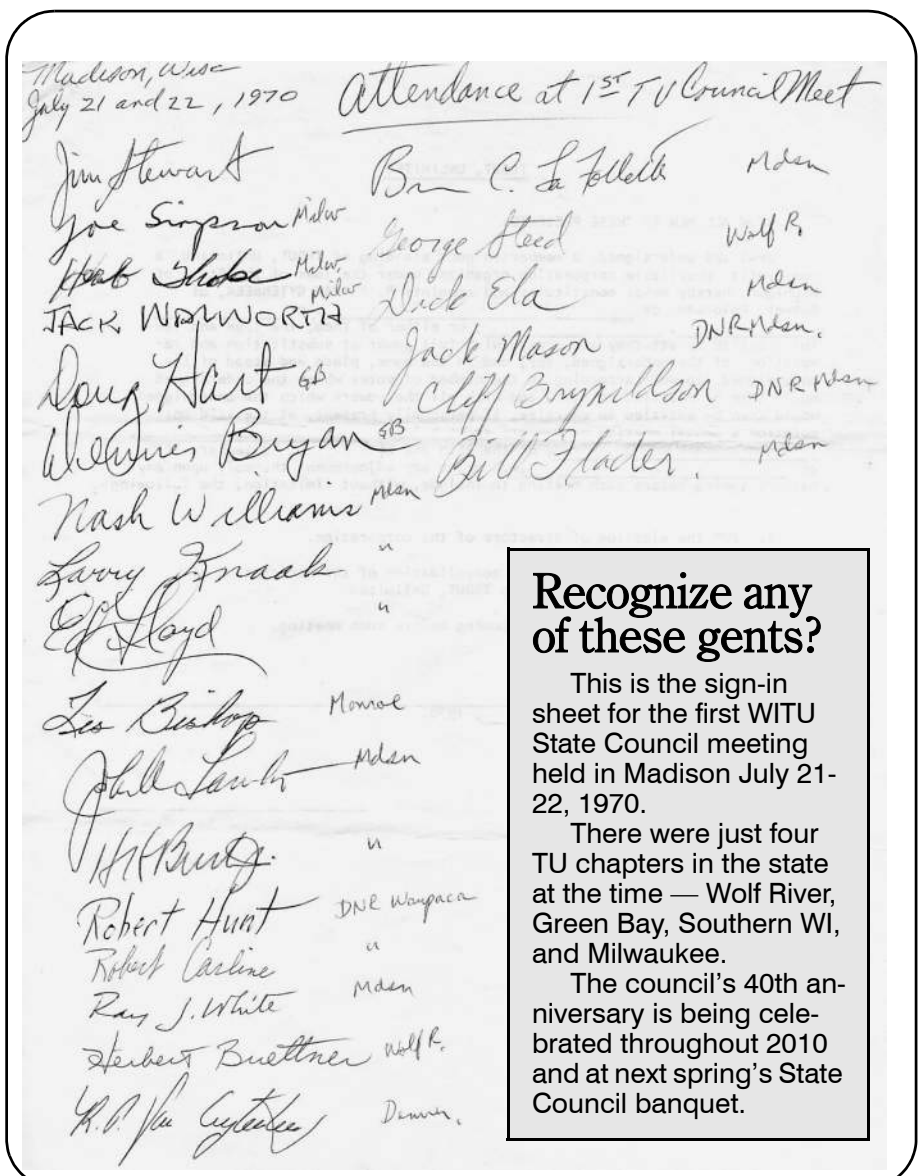 Madison, Wisc
July 21 and 22, 1970
Attendance at 1ST TU Council Meet
Jim Stewart
Joe Simpson Milw
Herb Milw
JACK WALWORTH Milw
Doug Hart GB
Bryan GB
Nash Williams Mdsn
Larry Knaak "
Ed Lloyd "
Les Bishop Monroe
Mdsn
"
Robert Hunt DNR Waupaca
Robert Carline "
Ray J. White Mdsn
Herbert Buettner Wolf R.
R.P. Van Denver.
C. La Follette Mdsn
George Steed Wolf R.
Dick Eta Mdsn
Jack Mason DNR Mdsn.
Clif Brynildson DNR Mdsn
Bill Flader. Mdsn
Recognize any
of these gents?
This is the sign-in
sheet for the first WITU
State Council meeting
held in Madison July 21-
22, 1970.
There were just four
TU chapters in the state
at the time — Wolf River,
Green Bay, Southern WI,
and Milwaukee.
The council's 40th an-
niversary is being cele-
brated throughout 2010
and at next spring's State
Council banquet.